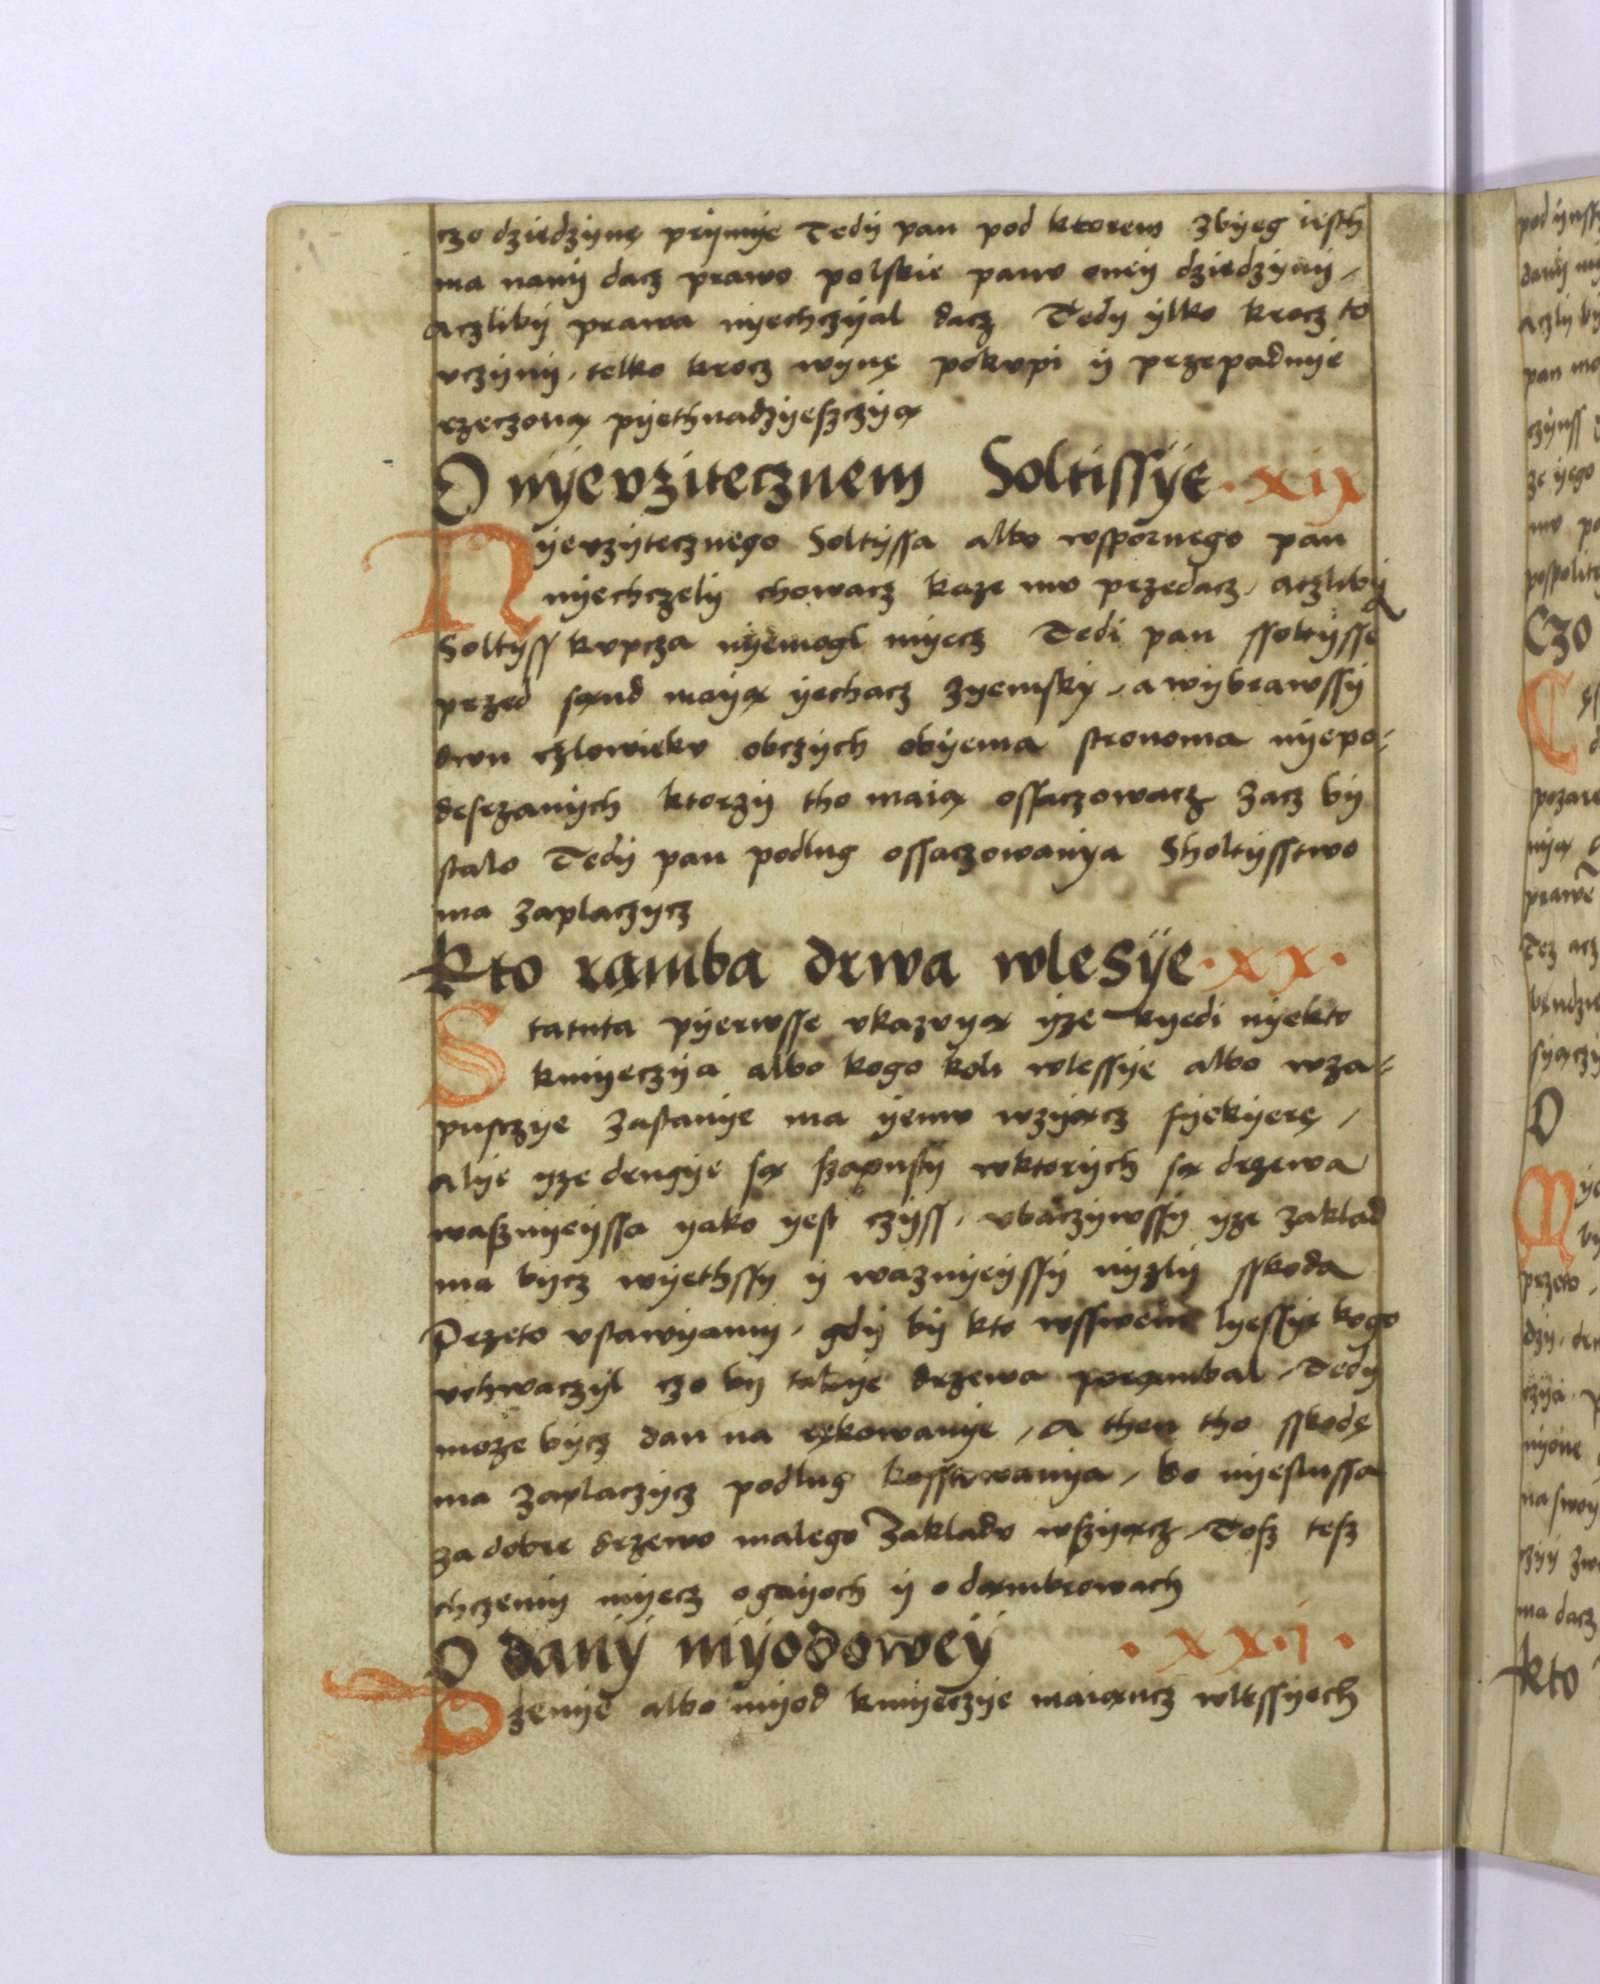 czo dziedzynę prijmije Tedij pan pod ktorem zbyeg iesth
ma nanij dacz prawo polskie panv oneij dziedzynij,
aczlibij prawa nyechczyal dacz Tedy ylko krocz to
vczynij, telko krocz wynę pokvpi ij przepadnye
rzeczoną pyethnadzyesczyą
O nijevzitecznem Soltissÿe · xix
Nyevzytecznego Soltyssa albo wspornego pan
nyechczely chowacz kaze mv przedacz, aczlibij
Soltyss kvpcza nyemogl myecz Tedi pan ssoltysse
przed sąnd mayą yechacz zyemsky, a wybrawssy
dwu czlowiekv obczych obyema stronoma nyepo-
desrzanych ktorzy tho maią ossaczowacz zacz by
stalo Tedy pan podlug ossaczowanya Sholtysstwo
ma zaplaczycz
Kto rąmba drwa wlesÿe · xx ·
Statuta pyerwsse vkazvyą yze kyedi nyekto
kmyeczya albo kogo koli wlessye albo wza-
pusczye zastanye ma yemv wzyącz syekyerę,
alye yze drugye są szapusty wktorych są drzewa
wasznyeyssa yako yest czyss, vbaczywssy yze zaklad
ma bycz wyethssy y waznyeyssy nyzly sskoda
Przeto vstawyamy, gdy by kto wsswem lyessye kogo
vchwaczyl czo by takye drzewa porąmbal, Tedy
moze bycz dan na rękowanye, A then tho sskodę
ma zaplaczycz podlug kosstowanya, bo nyeslussa
za dobre drzewo malego zakladv wszyącz, Tosz tesz
chczemy myecz ogayoch y o dąmbrowach
O danij mijodoweij · xx·i ·
Dzenye albo myod kmyeczye maiąncz wlessyech
pod ynss
aczly by
pan
czynss
ze yego
mv
Czo
O
przeto,
ma dacz
kto